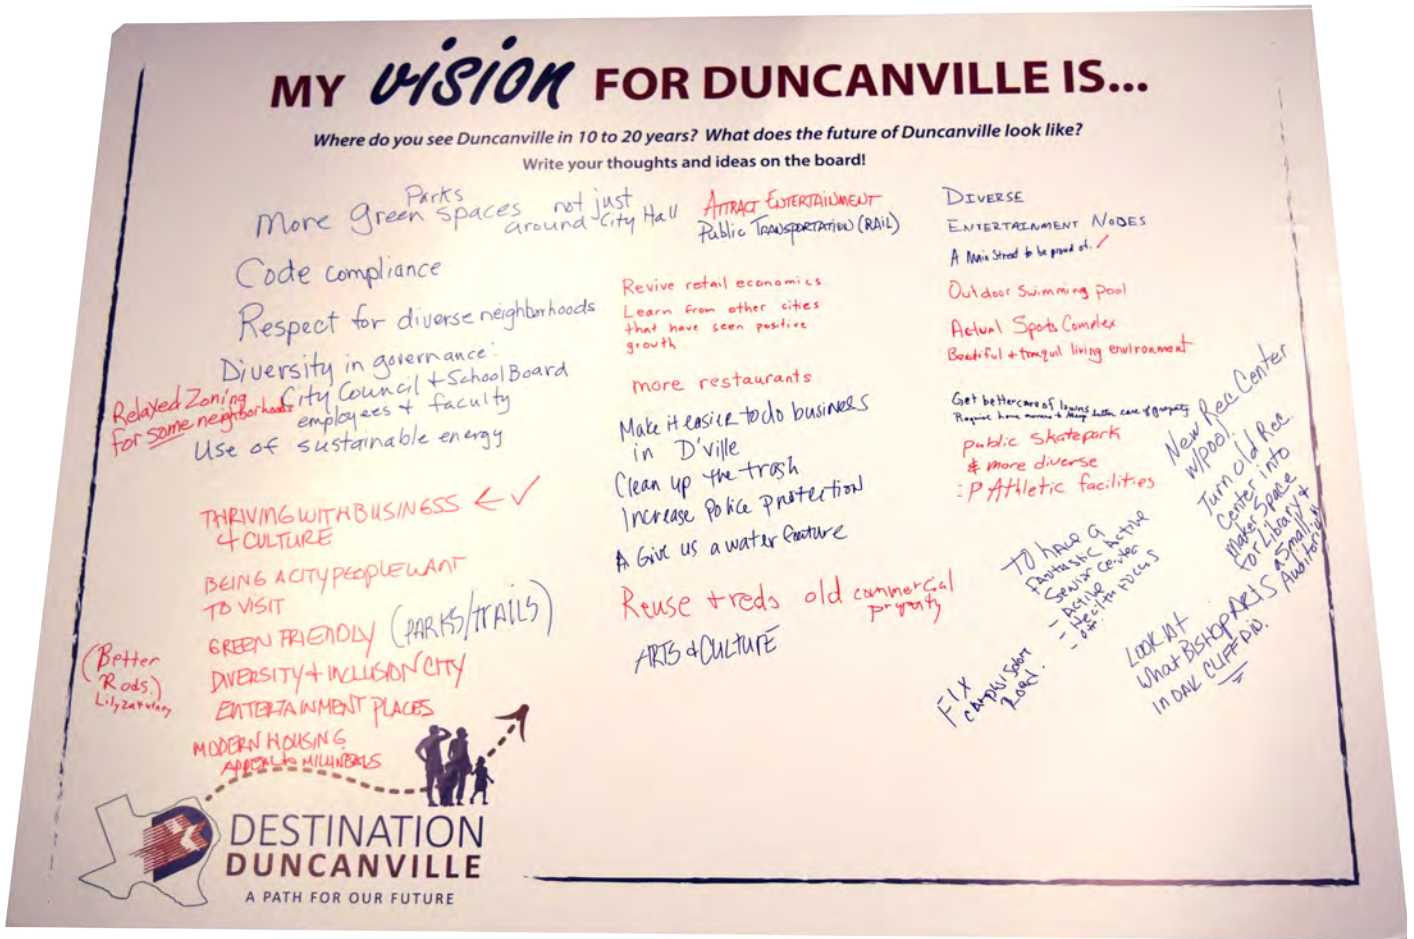 MY vision FOR DUNCANVILLE IS...
Where do you see Duncanville in 10 to 20 years? What does the future of Duncanville look like?
Write your thoughts and ideas on the board!
Parks
More Green Spaces not just
around City Hall
Code compliance
Respect for diverse neighborhoods
Diversity in governance:
City Council + School Board
employees + faculty
Relaxed Zoning
for some neighborhoods
Use of sustainable energy
THRIVING WITH BUSINESS ← ✓
+ CULTURE
BEING A CITY PEOPLE WANT
TO VISIT
GREEN FRIENDLY (PARKS/TRAILS)
DIVERSITY + INCLUSION CITY
(Better
Rods.)
ENTERTAINMENT PLACES
MODERN HOUSING
APPEAL to
ATTRACT ENTERTAINMENT
Public TRANSPORTATION (RAIL)
Revive retail economics.
Learn from other cities
that have seen positive
growth.
more restaurants
Make it easier to do business
in D'ville
Clean up the trash
Increase Police protection
A Give us a water feature
Reuse + redo old commercial
property
ARTS & CULTURE
DIVERSE
ENTERTAINMENT NODES
A Main Street to be proud of. ✓
Outdoor Swimming pool
Actual Sports Complex
Beautiful + tranquil living environment
Get better care of lawns
Require home owners to keep better care of property
public skatepark
& more diverse
:P Athletic facilities
New Rec Center
w/pool.
Turn old Rec.
Center into
Maker Space
for Library +
a Small
Auditorium
TO have a
fantastic Active
Senior Center
- Active
- Health Focus
LOOK AT
what Bishop ARTS
IN OAK CLIFF DID.
FIX
Road.
DESTINATION
DUNCANVILLE
A PATH FOR OUR FUTURE